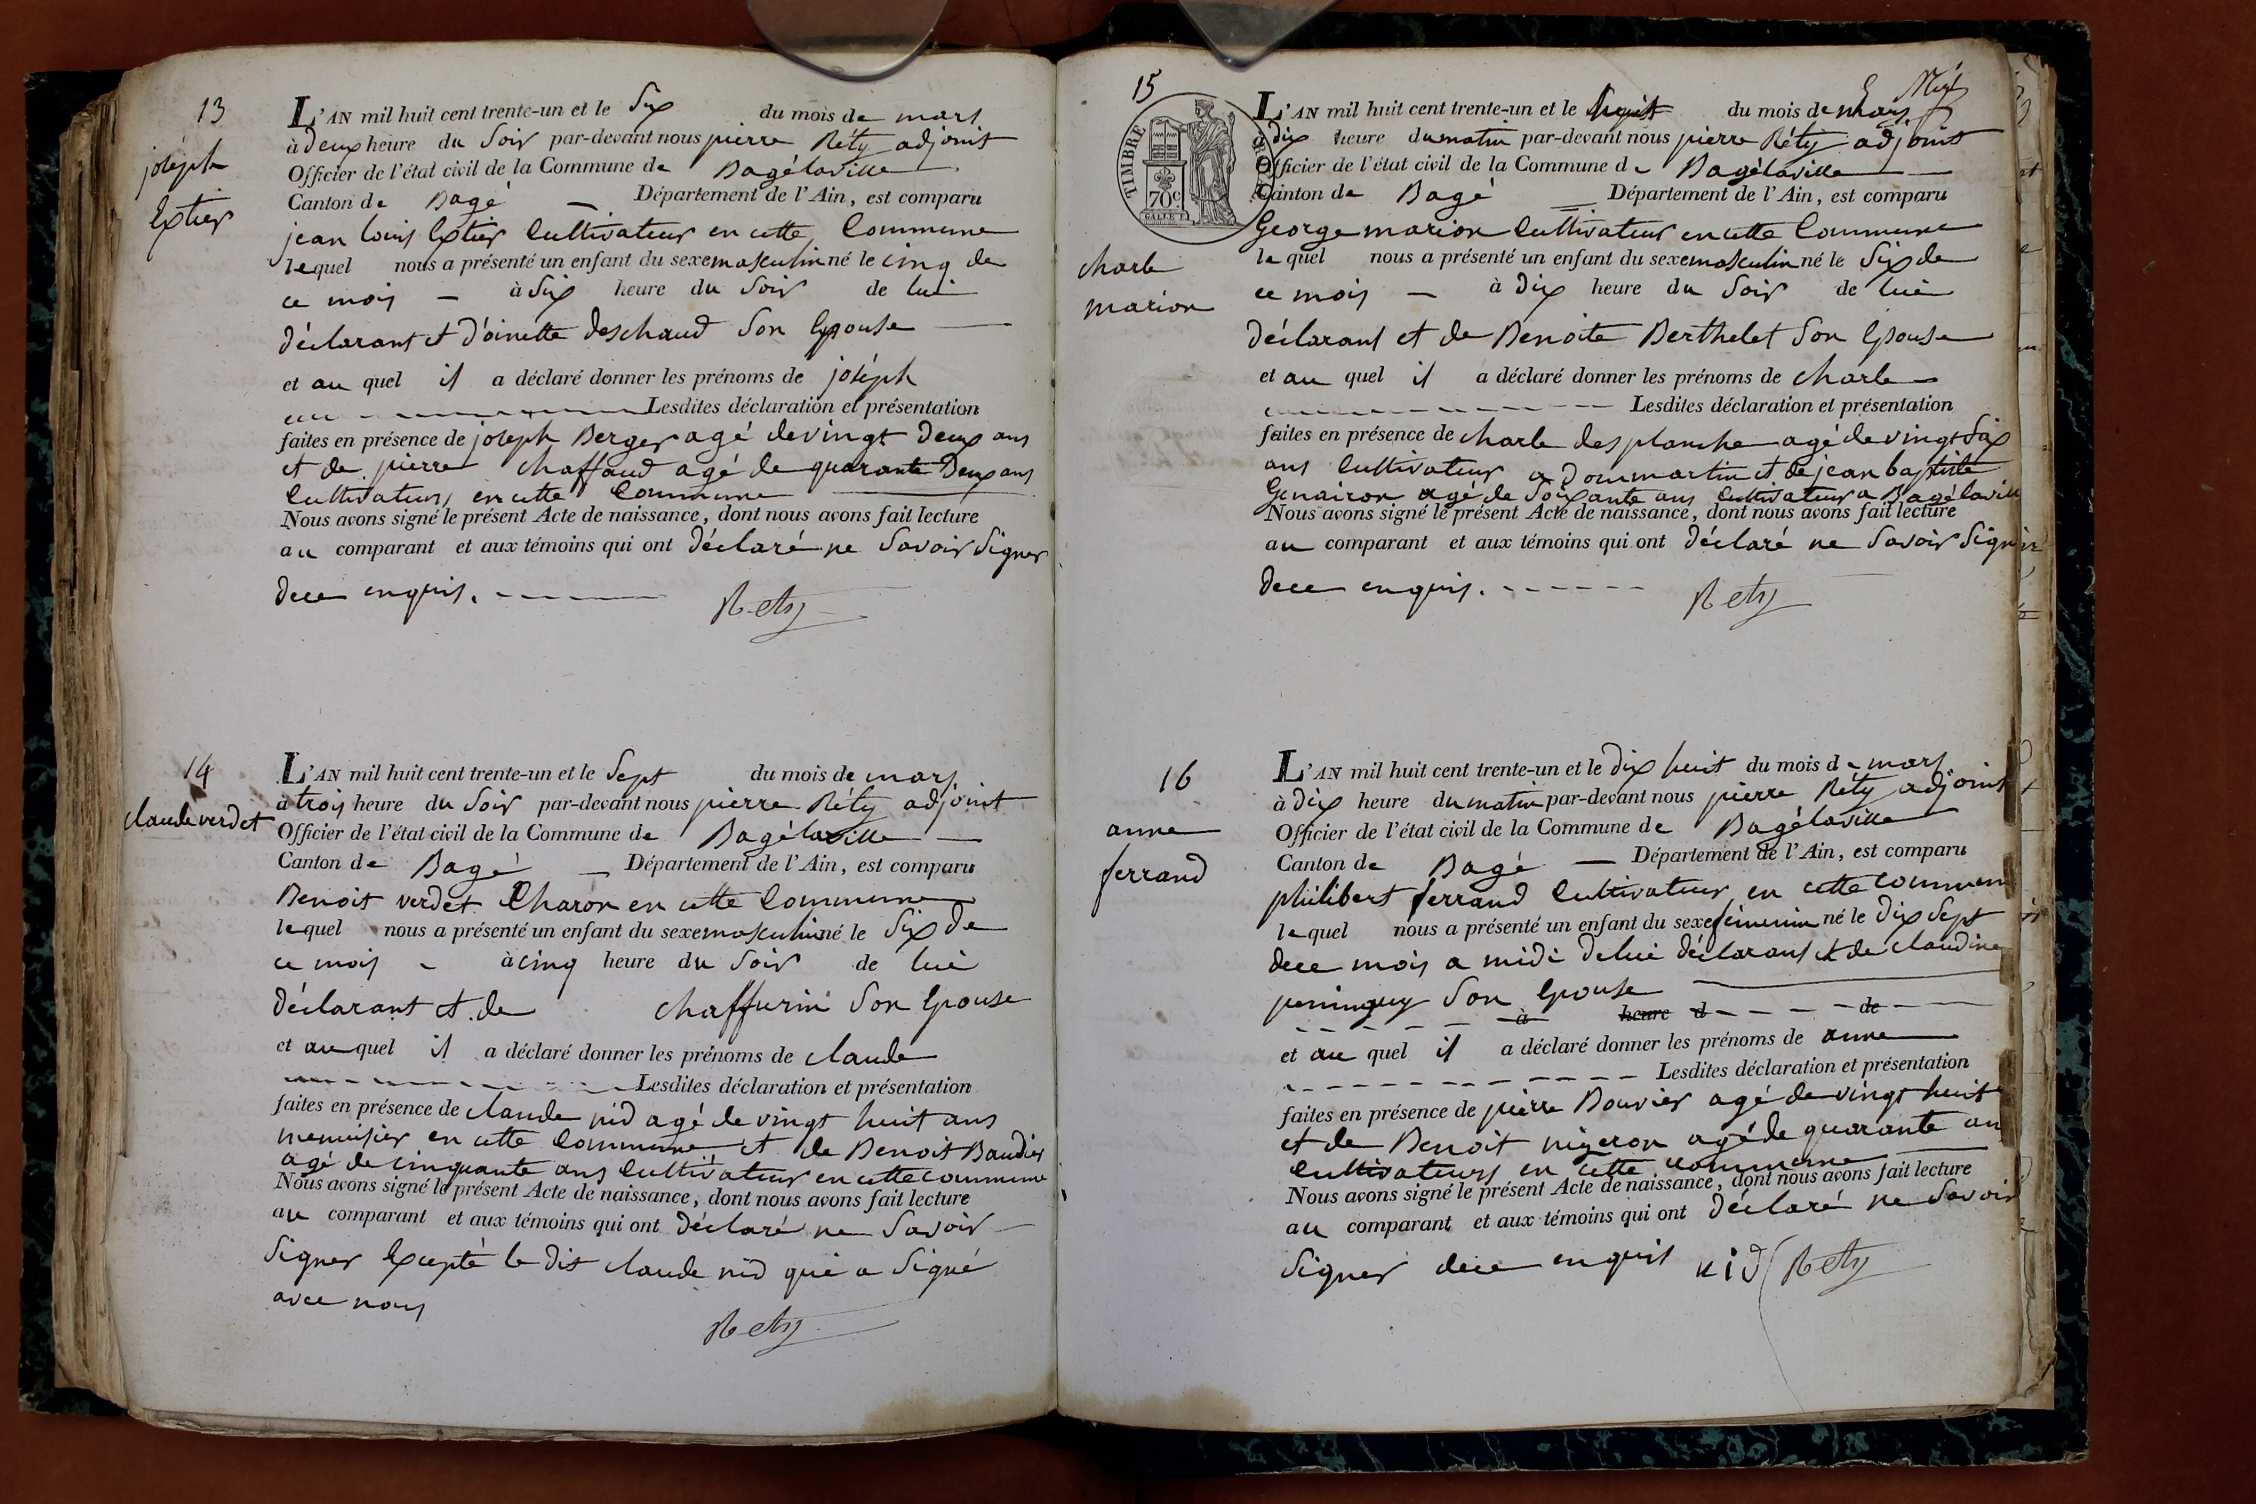 13
joséph
Extier
L'AN mil huit cent trente-un et le Six du mois de mars
à deux heure du Soir par-devant nous pierre Réty adjoint
Officier de l'état civil de la Commune de Bagélaville
Canton de Bagé — Département de l'Ain, est comparu
jean louis Extier Cultivateur en cette Commune
lequel nous a présenté un enfant du sexe masculin né le cinq de
ce mois — à Six heure du Soir de lui
déclarant et d'oinette deschaud Son Epouse
et au quel il a déclaré donner les prénoms de joséph
Lesdites déclaration et présentation
faites en présence de joseph Berger agé de vingt Deux ans
et de pierre Chaffaud agé de quarante Deux ans
Cultivateurs en cette Commune
Nous avons signé le présent Acte de naissance, dont nous avons fait lecture
au comparant et aux témoins qui ont déclaré ne Savoir Signer
dece enquis.
Rety
14
claude verdet
L'AN mil huit cent trente-un et le Sept du mois de mars
à trois heure du Soir par-devant nous pierre Réty adjoint
Officier de l'état civil de la Commune de Bagélaville
Canton de Bagé — Département de l'Ain, est comparu
Benoit verdet Charon en cette Commune
lequel nous a présenté un enfant du sexe masculin né le Six de
ce mois - à cinq heure du Soir de lui
déclarant et de chaffurin Son Epouse
et au quel il a déclaré donner les prénoms de claude
Lesdites déclaration et présentation
faites en présence de claude nid agé de vingt huit ans
menuisier en cette Commune et de Benoit Baudier
agé de cinquante ans Cultivateur en cette commune
Nous avons signé le présent Acte de naissance, dont nous avons fait lecture
au comparant et aux témoins qui ont déclaré ne Savoir
Signer Excepté le dit claude nid qui a Signé
avec nous
Rety
15
TIMBRE ROYAL
70c
charle
marion
L'AN mil huit cent trente-un et le huit du mois de mars
à dix heure du matin par-devant nous pierre Réty adjoint
Officier de l'état civil de la Commune de Bagélaville
Canton de Bagé — Département de l'Ain, est comparu
George marion Cultivateur en cette Commune
lequel nous a présenté un enfant du sexe masculin né le Six de
ce mois — à dix heure du Soir de lui
déclarant et de Benoite Berthelet Son Epouse
et au quel il a déclaré donner les prénoms de charle
Lesdites déclaration et présentation
faites en présence de charle desplanche agé de vingt Six
ans Cultivateur a Dommartin et de jean baptiste
Genairon agé de Soixante ans Cultivateur a Bagélaville
Nous avons signé le présent Acte de naissance, dont nous avons fait lecture
au comparant et aux témoins qui ont déclaré ne Savoir Signer
dece enquis.
Rety
16
anne
ferrand
L'AN mil huit cent trente-un et le dix huit du mois de mars
à Dix heure du matin par-devant nous pierre Réty adjoint
Officier de l'état civil de la Commune de Bagélaville
Canton de Bagé — Département de l'Ain, est comparu
philibert ferrand Cultivateur en cette commune
lequel nous a présenté un enfant du sexe féminin né le dix Sept
dece mois a midi de lui déclarant et de claudine
peninguy Son Epouse
à heure d de
et au quel il a déclaré donner les prénoms de anne
Lesdites déclaration et présentation
faites en présence de pierre Bouvier agé de vingt huit
et de Benoit nizeron agé de quarante ans
Cultivateurs en cette commune
Nous avons signé le présent Acte de naissance, dont nous avons fait lecture
au comparant et aux témoins qui ont déclaré ne Savoir
Signer dece enquis nid Rety